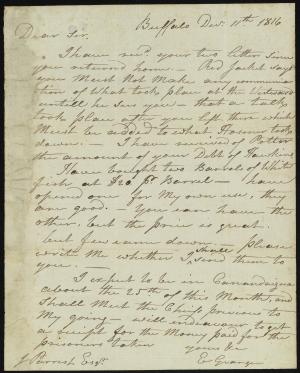 Buffalo Decr. 11th 1816
Dear Sir.
I have recd. your two letters since
you returned home — Red Jacket says
you Must Not Make any communica
tion of what took place at the
untill he sees you — that a talk
took place after you left there which
Must be added to what Hosmer took
down. — I have received of Potter
the amount of your Debt of Hawkins
Have bought two Barrels of White
fish at $20 pr Barrel — I have
opened one for My own use, they
are good. — You can have the
other, but the price is great.
but few came down. — Please
write Me whether I shall send them to
you. —
I expect to be in Canandaigua
about the 25th of this Month, and
shall Meet the Chiefs previous to
My going — will endeavour to get
a receipt for the Money paid for the
prisoners taken yours &c
J Parrish Esqr. E Granger